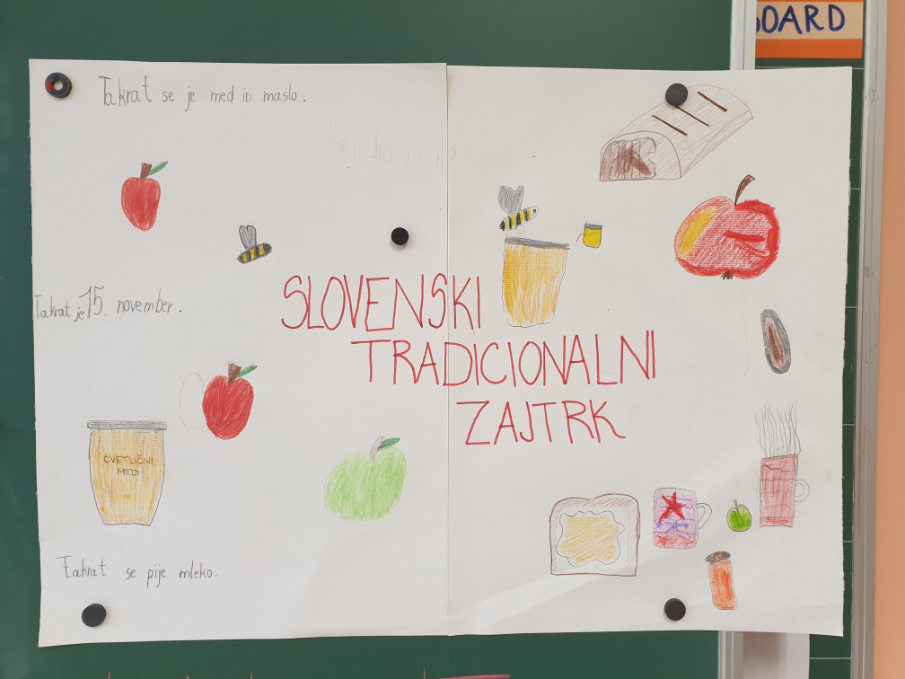 OARD
Takrat se je med in maslo.
Takrat je 15. november.
SLOVENSKI
TRADICIONALNI
ZAJTRK
CVETLIČNI
MED
Takrat se pije mleko.